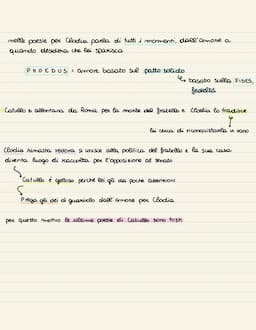 nelle poesie per Clodia parla di tutti i momenti, dall'amore a
quando desidera che lei sparisca
PHOEDUS = amore basato sul patto solido
↳ basato sulla FIDES,
fedeltà
Catullo si allontana da Roma per la morte del fratello e Clodia lo tradisce
lui cerca di riconquistarla in vano
Clodia rimasta vedova si unisce alla politica del fratello e la sua casa
diventa luogo di raccolta per l'opposizione al senato
↳ Catullo è geloso perché lei gli da poche attenzioni
↳ Prega gli dei di guarirlo dall'amore per Clodia
per questo motivo le ultime poesie di Catullo sono tristi